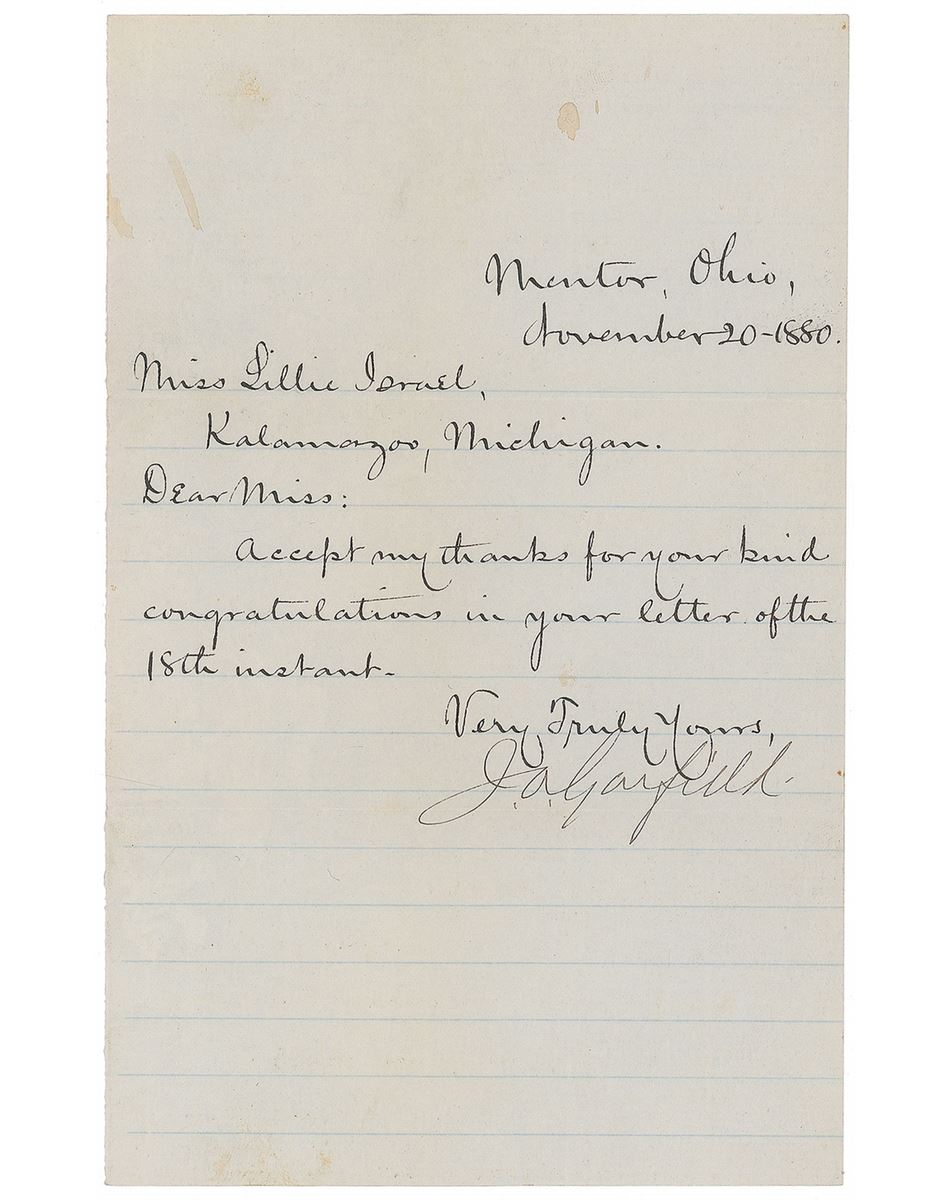 Mentor, Ohio,
November 20-1880.
Miss Lillie Israel,
Kalamazoo, Michigan.
Dear Miss:
Accept my thanks for your kind
congratulations in your letter of the
18th instant.
Very Truly Yours,
J.A. Garfield.